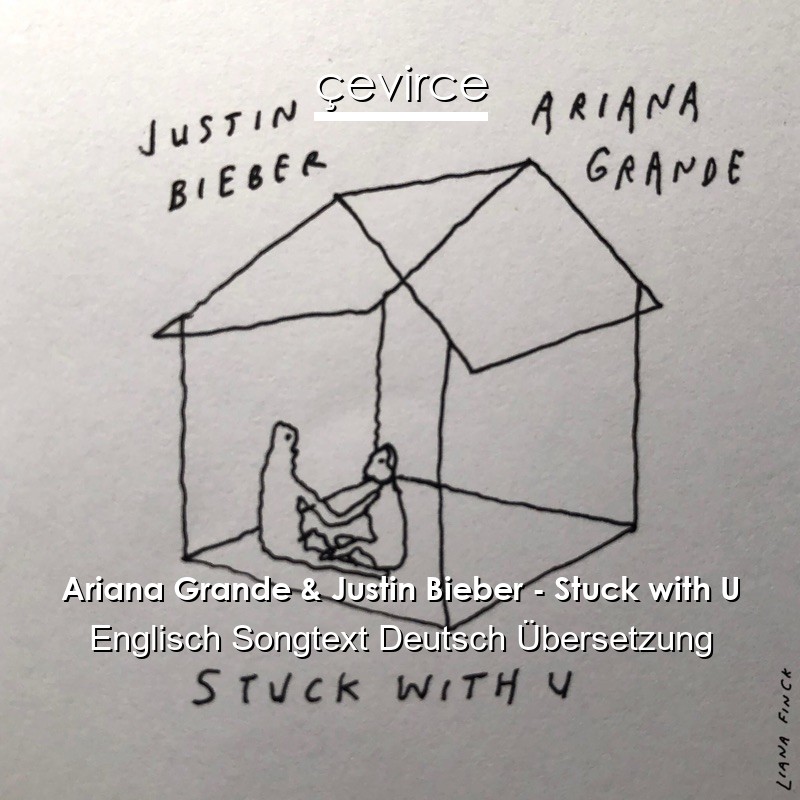 çevirce
JUSTIN
BIEBER
ARIANA
GRANDE
Ariana Grande & Justin Bieber - Stuck with U
Englisch Songtext Deutsch Übersetzung
STUCK WITH U
LIANA FINCK